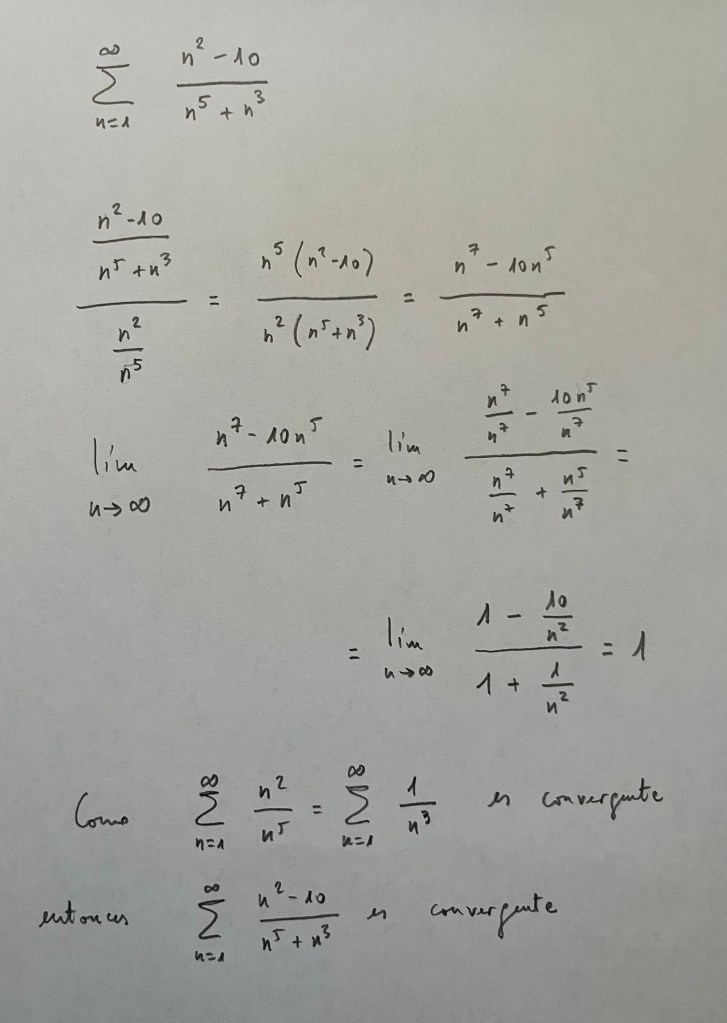 ∞ ∑ n=1 (n² - 10)/(n⁵ + n³)
((n² - 10)/(n⁵ + n³))/(n²/n⁵) = (n⁵(n² - 10))/(n²(n⁵ + n³)) = (n⁷ - 10n⁵)/(n⁷ + n⁵)
lím n→∞ (n⁷ - 10n⁵)/(n⁷ + n⁵) = lím n→∞ (n⁷/n⁷ - 10n⁵/n⁷)/(n⁷/n⁷ + n⁵/n⁷) =
= lím n→∞ (1 - 10/n²)/(1 + 1/n²) = 1
Como ∞ ∑ n=1 n²/n⁵ = ∞ ∑ n=1 1/n³ es convergente
entonces ∞ ∑ n=1 (n² - 10)/(n⁵ + n³) es convergente